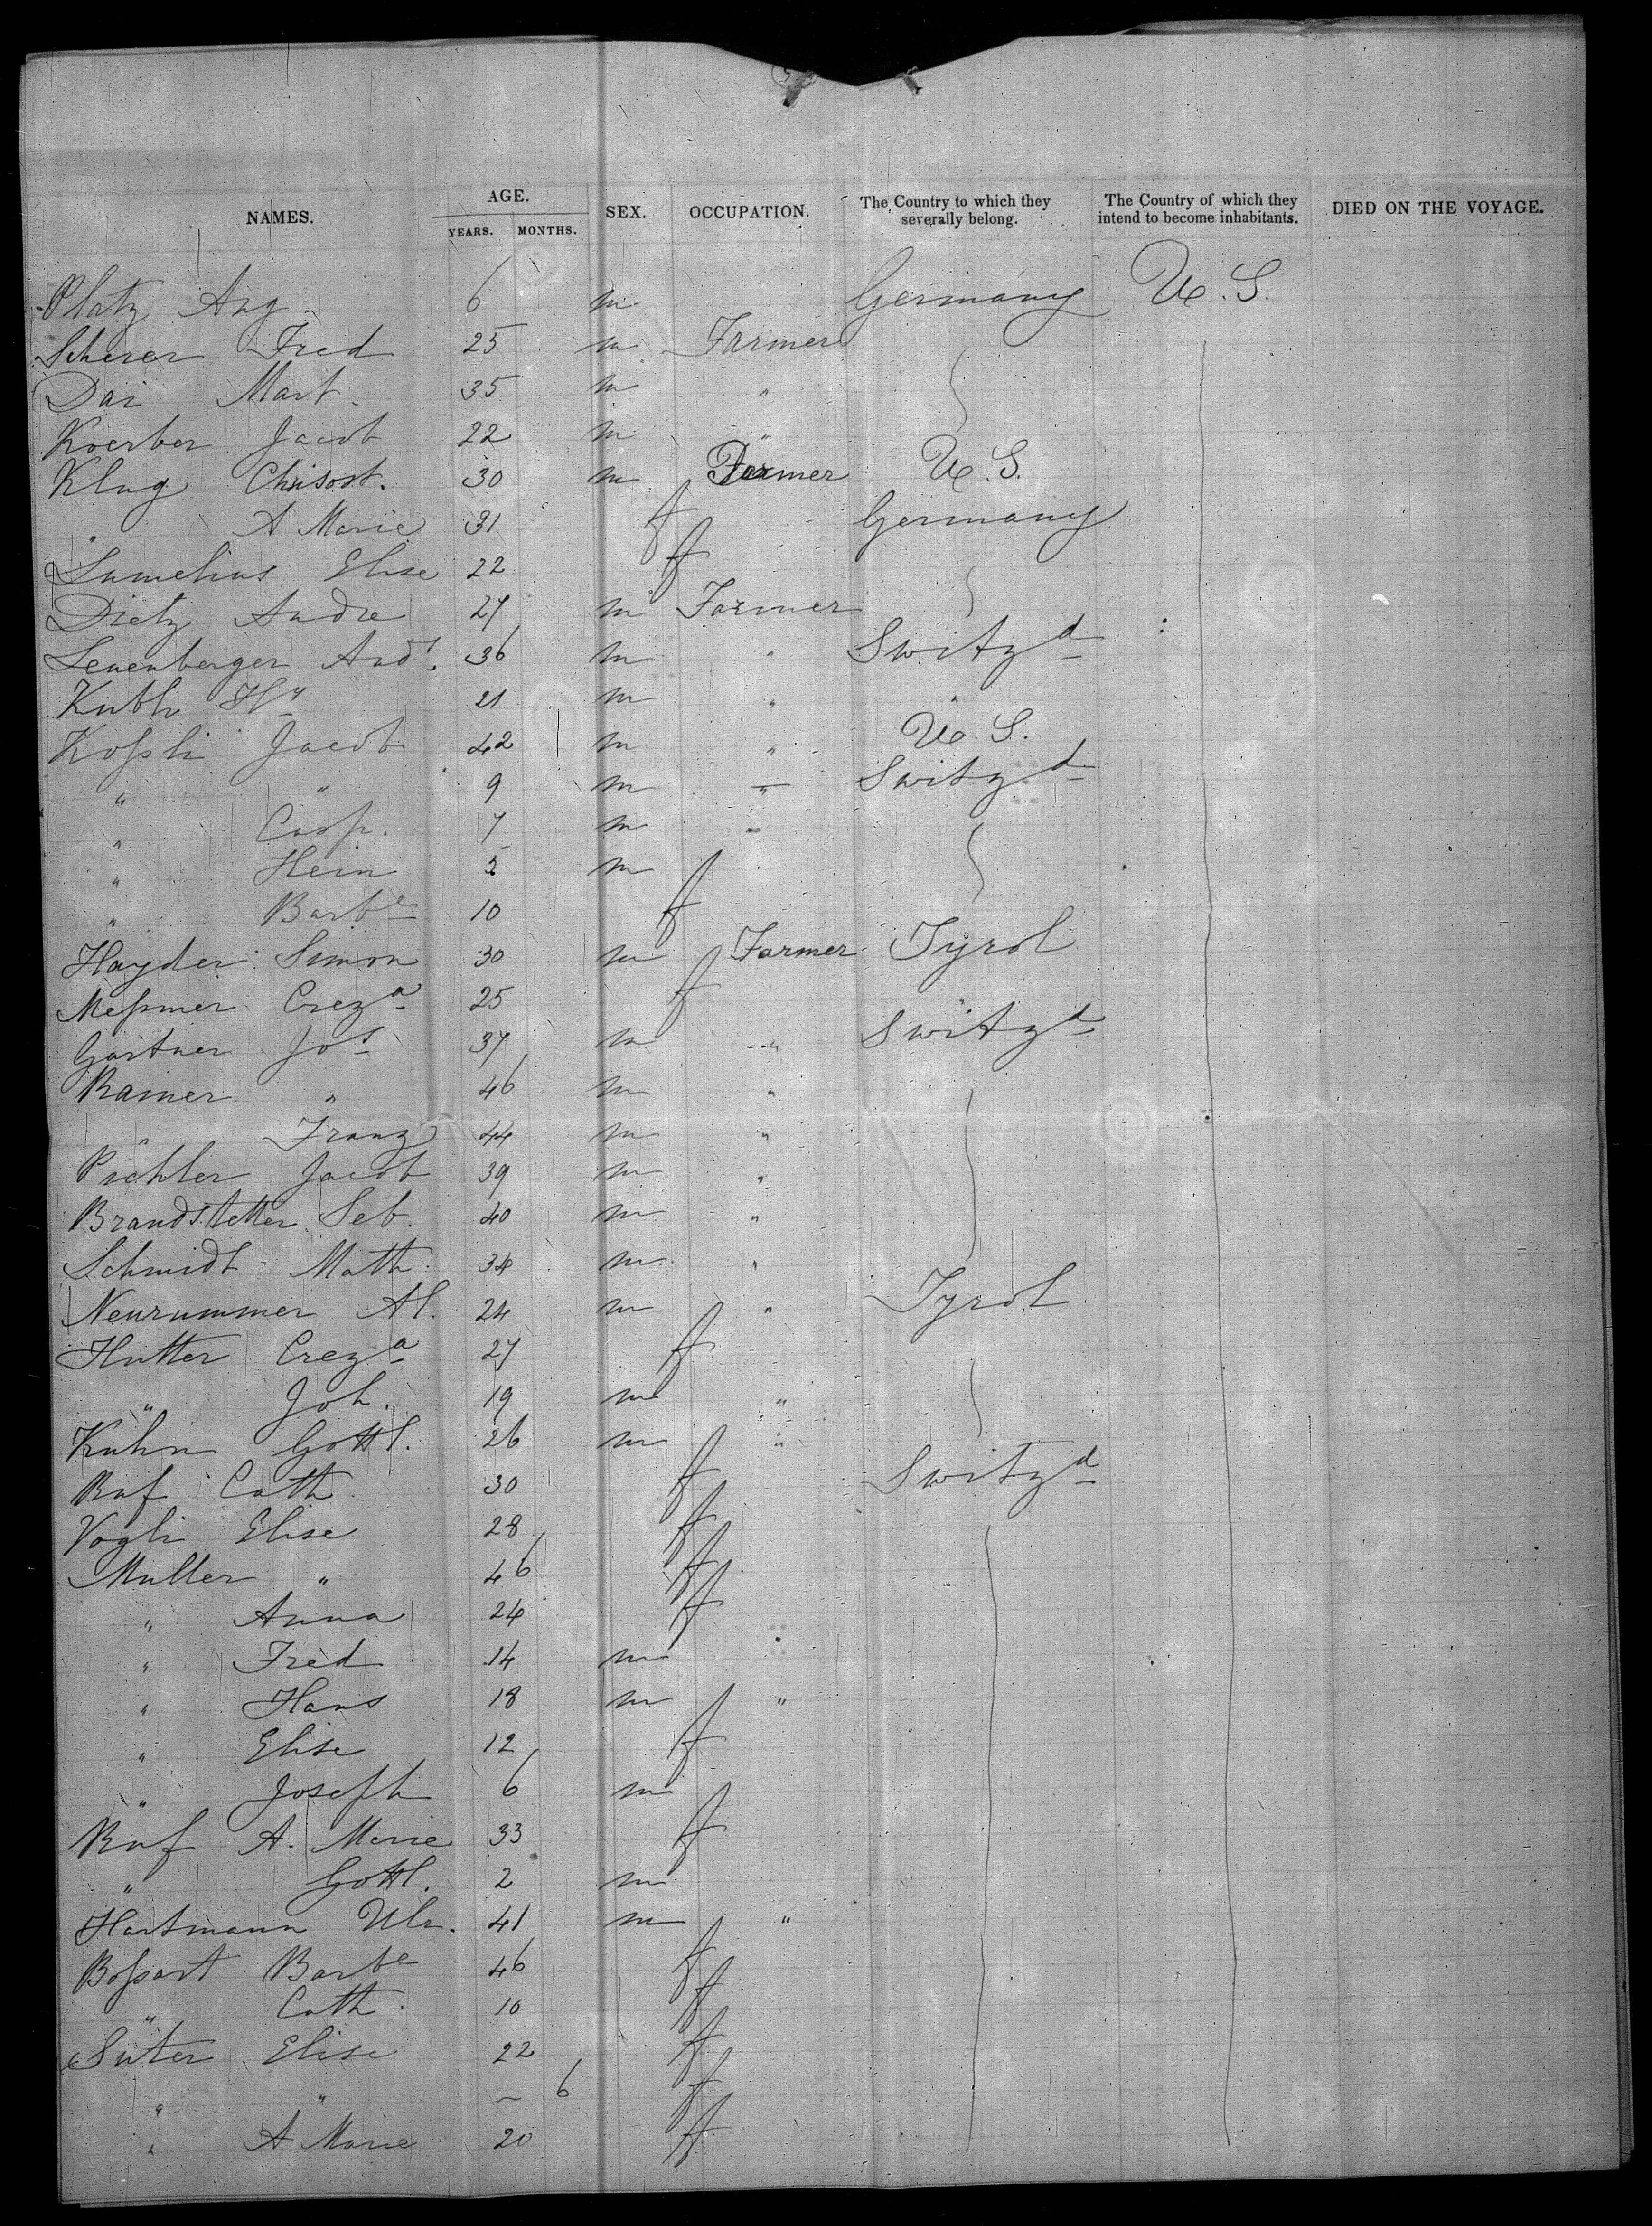 NAMES. AGE. YEARS. MONTHS. SEX. OCCUPATION. The Country to which they severally belong. The Country of which they intend to become inhabitants. DIED ON THE VOYAGE.
Platz Aug. 6 m Germany U. S.
Scherer Fred 25 m Farmer
Dai Mart. 35 m "
Koerber Jacob 22 m "
Klug Chrisost. 30 m Farmer U. S.
" A Marie 31 f Germany
Lumelius Elise 22 f
Dietz Andre 27 m Farmer
Leuenberger Ands. 36 m " Switzd
Kubli Hy 21 m " "
Koſsli Jacob 42 m " U. S.
" " 9 m " Switzd
" Casp. 7 m "
" Hein 5 m
" Barbe 10 f
Hayder Simon 30 m Farmer Tyrol
Meſsmer Creza 25 f "
Gartner Jos 37 m " Switzd
Rainer " 46 m "
" Franz 44 m "
Pichler Jacob 39 m "
Brandstetter Seb. 40 m "
Schmidt Math. 34 m "
Neurummer Al. 24 m " Tyrol
Hutter Creza 27 f
" Joh. 19 m "
Kuhn Gottl. 26 m "
Ruf Cath 30 f Switzd
Vogli Elise 28 f
Muller " 46 f
" Anna 24 f
" Fred 14 m
" Hans 18 m "
" Elise 12 f
" Joseph 6 m
Ruf A. Marie 33 f
" Gottl. 2 m
Hartmann Ulr. 41 m "
Boſsart Barbe 46 f
" Cath. 10 f
Suter Elise 22 f
" " – 6 f
" A Marie 20 f